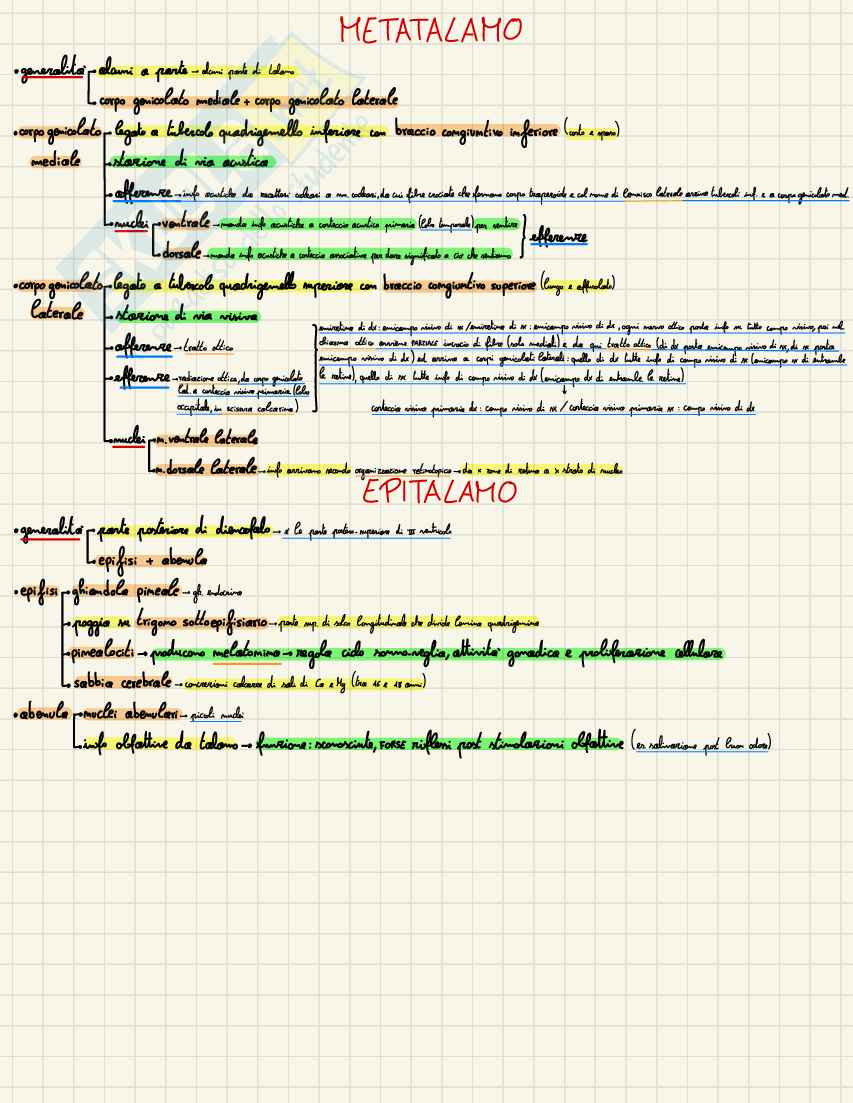 METATALAMO
• generalità alcuni a parte → alcuni parte di talamo
corpo genicolato mediale + corpo genicolato laterale
• corpo genicolato mediale legato a tubercolo quadrigemello inferiore con braccio congiuntivo inferiore (corto e spesso)
• stazione di via acustica
• afferenze → info acustiche da recettori cocleari a nn. cocleari, da cui fibre crociate che formano corpo trapezoide e col nome di lemnisco laterale arriva tubercoli inf. e a corpo genicolato med.
• nuclei ventrale → manda info acustiche a corteccia acustica primaria (lobo temporale) per sentire
dorsale → manda info acustiche a corteccia associativa per dare significato a ciò che sentiamo
efferenze
• corpo genicolato laterale legato a tubercolo quadrigemello superiore con braccio congiuntivo superiore (lungo e affusolato)
• stazione di via visiva
• afferenze → tratto ottico
• efferenze → radiazione ottica, da corpo genicolato
lat. a corteccia visiva primaria (lobo
occipitale, in scissura calcarina)
emiretina di dx: emicampo visivo di sx / emiretina di sx: emicampo visivo di dx, ogni nervo ottico porta info su tutto campo visivo, poi nel
chiasma ottico avviene PARZIALE incrocio di fibre (solo mediali) e da qui tratto ottico (di dx porta emicampo visivo di sx, di sx porta
emicampo visivo di dx) ed arrivano a corpi genicolati laterali: quello di dx tutte info di campo visivo di sx (emicampo sx di entrambe
le retine), quello di sx tutte info di campo visivo di dx (emicampo dx di entrambe le retine)
↓
corteccia visiva primaria dx: campo visivo di sx / corteccia visiva primaria sx: campo visivo di dx
• nuclei n. ventrale laterale
n. dorsale laterale → info arrivano secondo organizzazione retinotopica → da x zone di retina a x strato di nucleo
EPITALAMO
• generalità parte posteriore di diencefalo → x lo parte postero-superiore di III ventricolo
epifisi + abenula
• epifisi ghiandola pineale → gh. endocrina
poggia su trigono sottoepifisiario → parte sup. di solco longitudinale che divide lamina quadrigemina
pinealociti → producono melatonina → regola ciclo sonno-veglia, attività gonadica e proliferazione cellulare
sabbia cerebrale → concrezioni calcaree di sali di Ca e Mg (tra 16 e 18 anni)
• abenula nuclei abenulari → piccoli nuclei
info olfattive da talamo → funzione: sconosciute, FORSE riflessi post stimolazioni olfattive (es salivazione post buon odore)